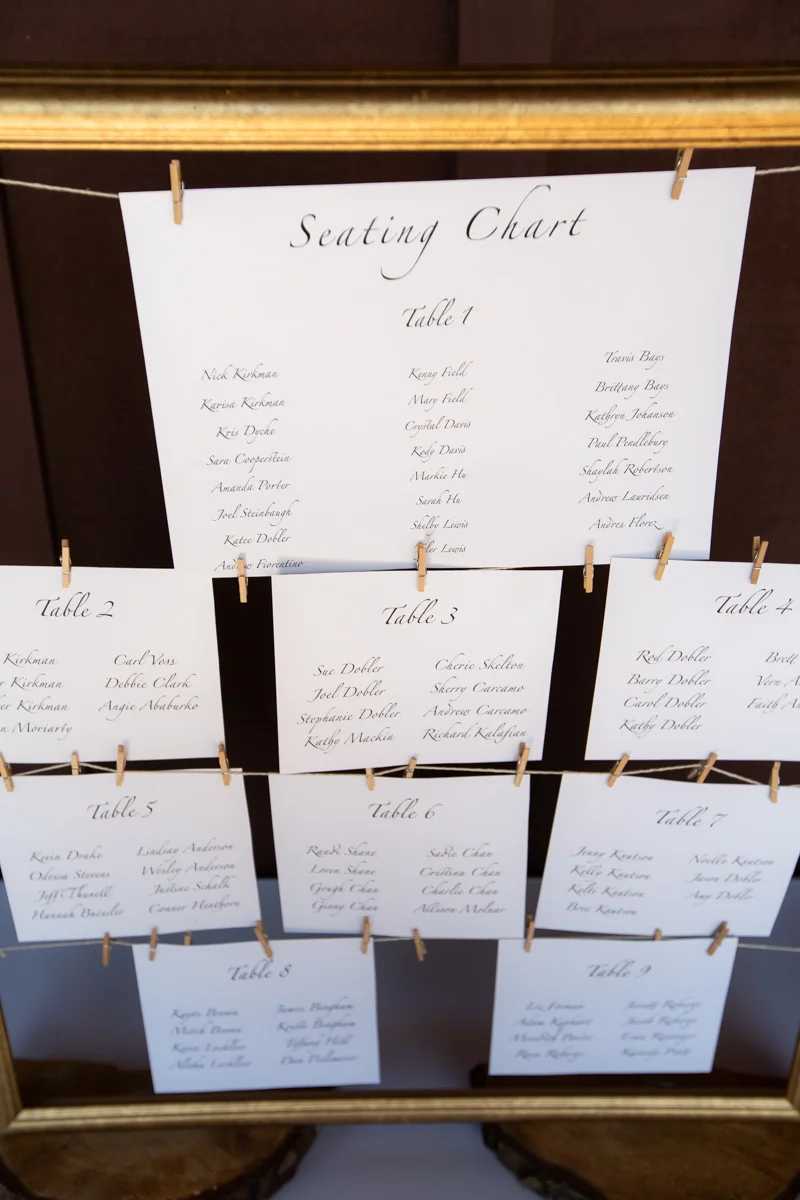 Seating Chart
Table 1
Nick Kirkman
Karisa Kirkman
Kris Dyche
Sara Cooperstein
Amanda Porter
Joel Steinbaugh
Katee Dobler
Andrew Fiorentino
Kenny Field
Mary Field
Crystal Davis
Kody Davis
Markie Hu
Sarah Hu
Shelby Lewis
Lewis
Travis Bays
Brittany Bays
Kathryn Johanson
Paul Pendlebury
Shaylah Robertson
Andrew Lauridsen
Andres Florez
Table 2
Kirkman
Kirkman
Kirkman
Moriarty
Carl Voss
Debbie Clark
Angie Ababurko
Table 3
Sue Dobler
Joel Dobler
Stephanie Dobler
Kathy Mackin
Cherie Skelton
Sherry Carcamo
Andrew Carcamo
Richard Kalafian
Table 4
Rod Dobler
Barry Dobler
Carol Dobler
Kathy Dobler
Brett
Vern
Faith
Table 5
Kevin Drake
Odessa Stevens
Jeff Thunell
Hannah Buessler
Lindsay Anderson
Wesley Anderson
Justine Schalk
Conner Henthorn
Table 6
Randi Shane
Loren Shane
Gough Chan
Ginny Chan
Sadie Chan
Cristina Chan
Charlie Chan
Allison Molnar
Table 7
Jenny Knutson
Kelly Knutson
Kelli Knutson
Bree Knutson
Noelle Knutson
Jason Dobler
Amy Dobler
Table 8
Brown
Mitch Brown
James Bingham
Bingham
Tiffany Hill
Dan
Table 9
Adam